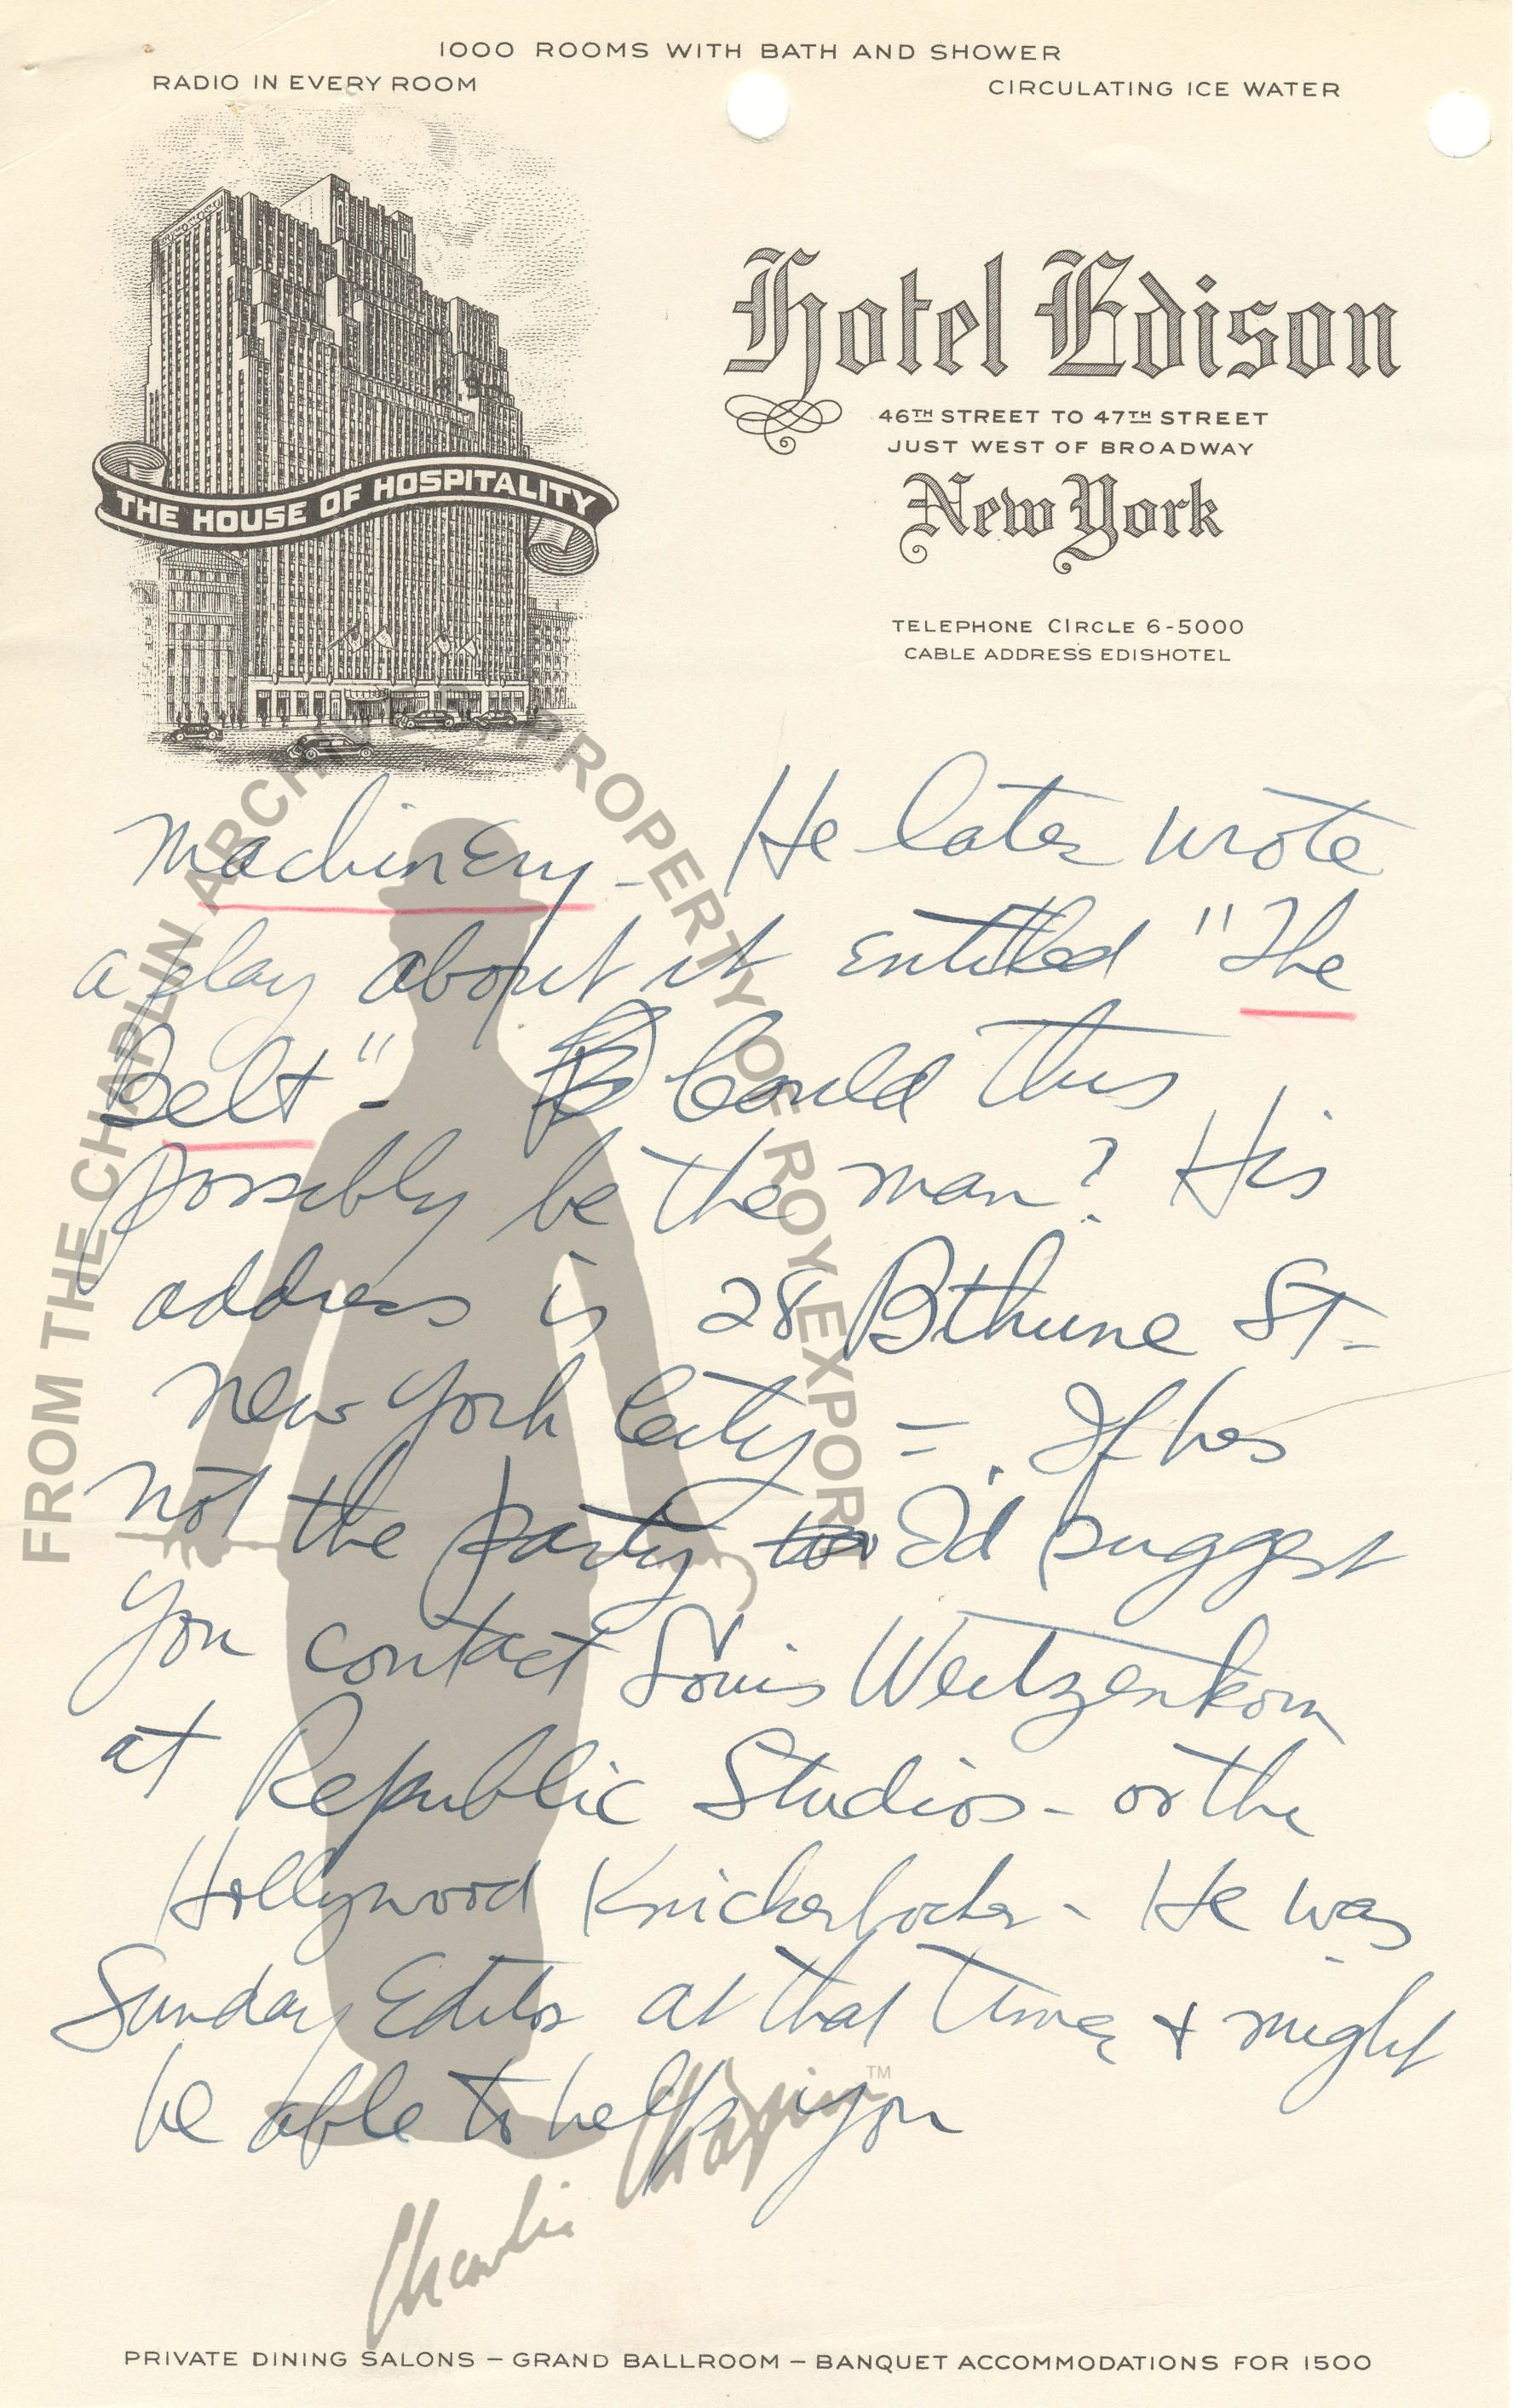 1000 ROOMS WITH BATH AND SHOWER
RADIO IN EVERY ROOM
CIRCULATING ICE WATER
THE HOUSE OF HOSPITALITY
Hotel Edison
46TH STREET TO 47TH STREET
JUST WEST OF BROADWAY
New York
TELEPHONE CIRCLE 6-5000
CABLE ADDRESS EDISHOTEL
machinery - He later wrote
a play about it entitled "The
Belt" - Could this
possibly be the man? His
address is 28 Bthune St -
New York City = . If hes
not the party I'd suggest
you contact Louis Weitzenkorn
at Republic Studios - or the
Hollywood Knickerbocker - He was
Sunday Editor at that time & might
be able to help you
FROM THE CHAPLIN ARCHIVES, PROPERTY OF ROY EXPORT
Charlie Chaplin™
PRIVATE DINING SALONS – GRAND BALLROOM – BANQUET ACCOMMODATIONS FOR 1500